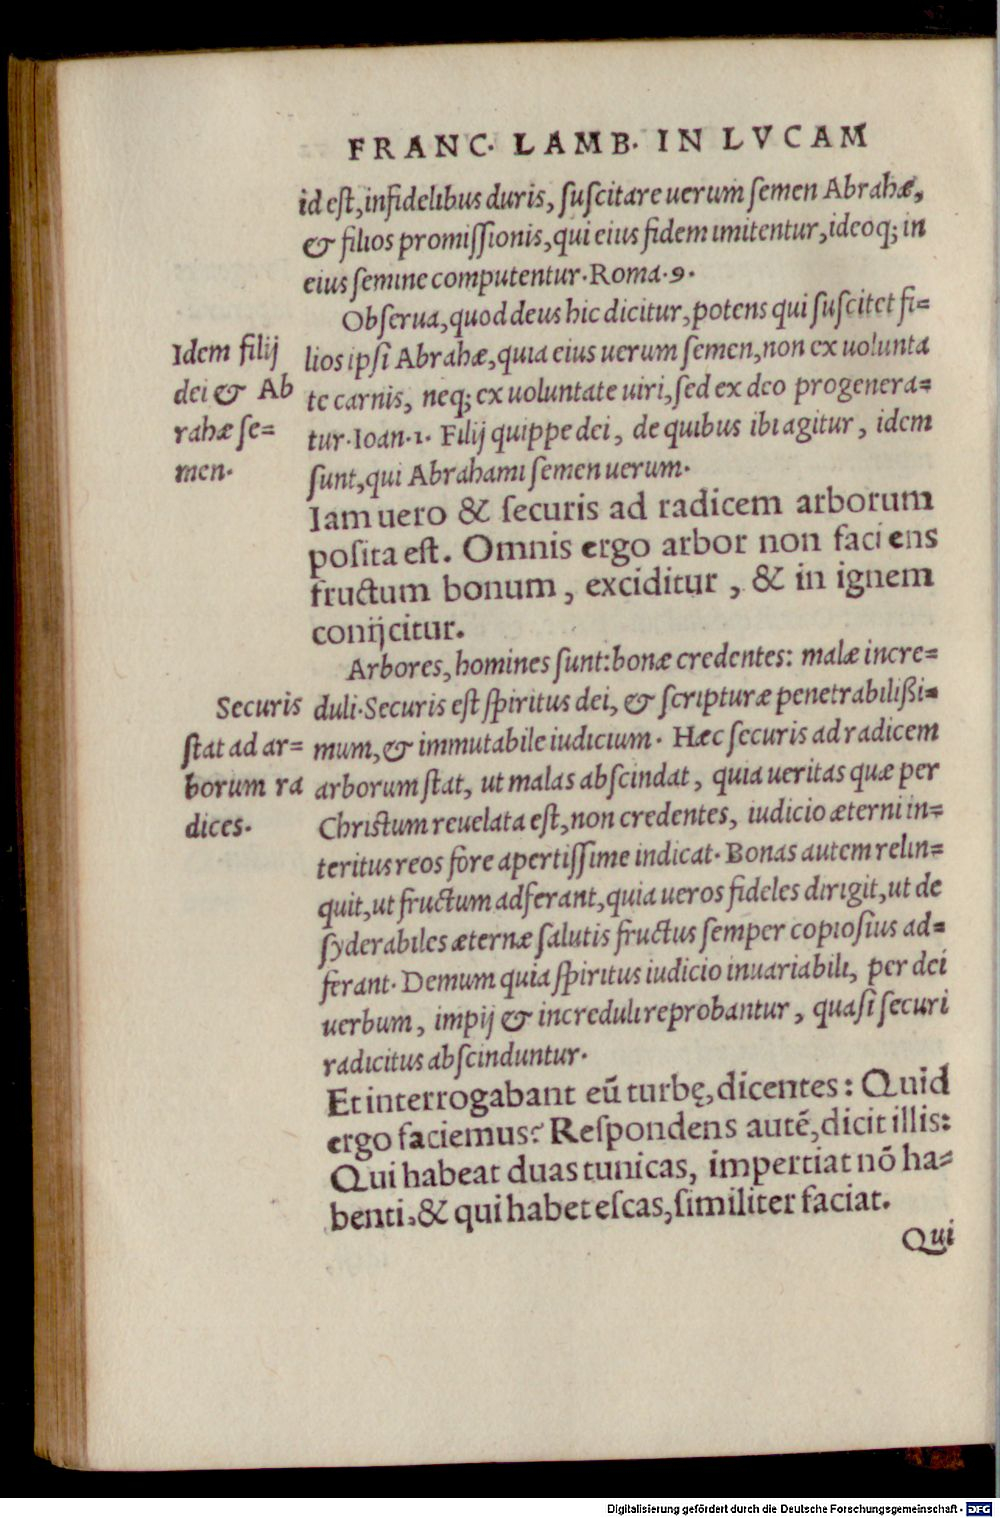 FRANC. LAMB. IN LVCAM
id est, infidelibus duris, suscitare uerum semen Abrahæ,
& filios promissionis, qui eius fidem imitentur, ideoq; in
eius semine computentur. Roma. 9.
Obserua, quod deus hic dicitur, potens qui suscitet fi=
lios ipsi Abrahæ, quia eius uerum semen, non ex uolunta
te carnis, neq; ex uoluntate uiri, sed ex deo progenera=
tur. Ioan. 1. Filij quippe dei, de quibus ibi agitur, idem
sunt, qui Abrahami semen uerum.
Idem filij
dei & Ab
rahæ se=
men.
Iam uero & securis ad radicem arborum
posita est. Omnis ergo arbor non faciens
fructum bonum, exciditur, & in ignem
conijcitur.
Arbores, homines sunt: bonæ credentes: malæ incre=
duli. Securis est spiritus dei, & scripturæ penetrabilißi=
mum, & immutabile iudicium. Hæc securis ad radicem
arborum stat, ut malas abscindat, quia ueritas quæ per
Christum reuelata est, non credentes, iudicio æterni in=
teritus reos fore apertissime indicat. Bonas autem relin=
quit, ut fructum adferant, quia ueros fideles dirigit, ut de
syderabiles æternæ salutis fructus semper copiosius ad=
ferant. Demum quia spiritus iudicio inuariabili, per dei
uerbum, impij & increduli reprobantur, quasi securi
radicitus abscinduntur.
Securis
stat ad ar=
borum ra
dices.
Et interrogabant eũ turbę, dicentes: Quid
ergo faciemus? Respondens autẽ, dicit illis:
Qui habeat duas tunicas, impertiat nõ ha=
benti, & qui habet escas, similiter faciat.
Qui
Digitalisierung gefördert durch die Deutsche Forschungsgemeinschaft - DFG